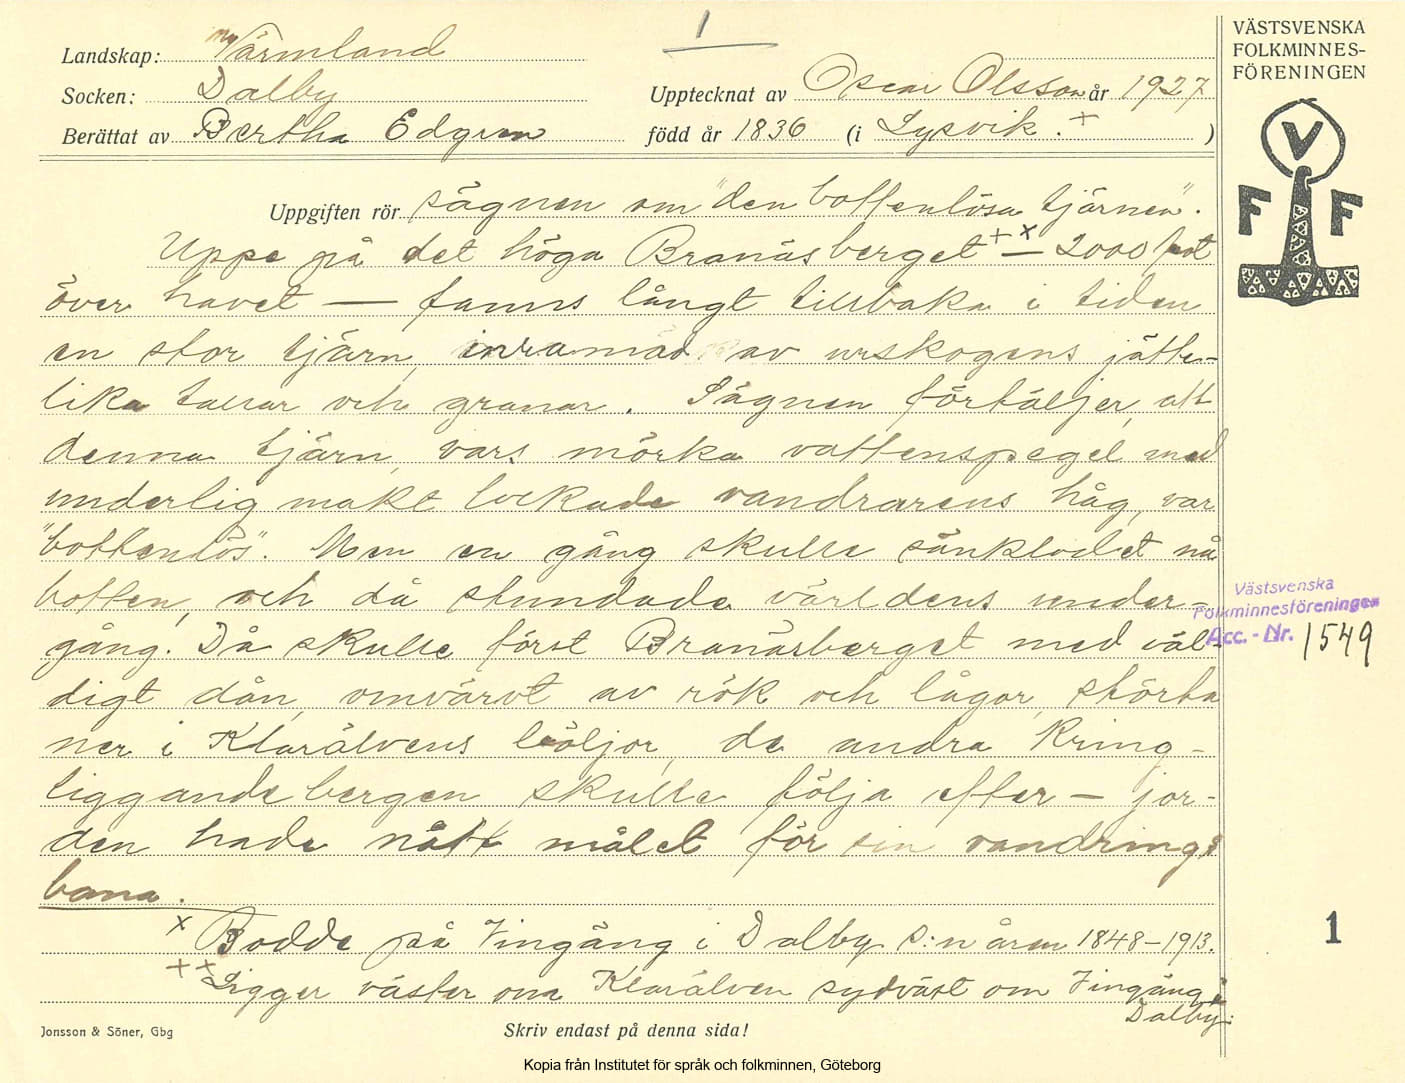 1
Landskap: Värmland
Socken: Dalby
Upptecknat av Oscar Olsson år 1927
Berättat av Bertha Edgren född år 1836 (i Lysvik. + )
VÄSTSVENSKA
FOLKMINNES-
FÖRENINGEN
V
F F
Uppgiften rör sägnen om "den bottenlösa tjärnen".
Uppe på det höga Branäsberget + x — 2000 fot
över havet — fanns långt tillbaka i tiden
en stor tjärn, inramad av urskogens jätte-
lika tallar och granar. Sägnen förtäljer, att
denna tjärn, vars mörka vattenspegel med
underlig makt lockade vandrarens håg, var
"bottenlös". Men en gång skulle sänklodet nå
botten, och då stundade världens under-
gång. Då skulle först Branäsberget med väl-
digt dån, omvärvt av rök och lågor, störta
ner i Klarälvens böljor, de andra kring-
liggande bergen skulle följa efter — jor-
den hade nått målet för sin vandrings
bana.
x Bodde på Vingäng i Dalby s:n åren 1848–1913.
+ + Ligger väster om Klarälven sydväst om Vingäng i
Dalby.
Västsvenska
Folkminnesföreningen
Acc. - Nr. 1549
1
Jonsson & Söner, Gbg
Skriv endast på denna sida!
Kopia från Institutet för språk och folkminnen, Göteborg